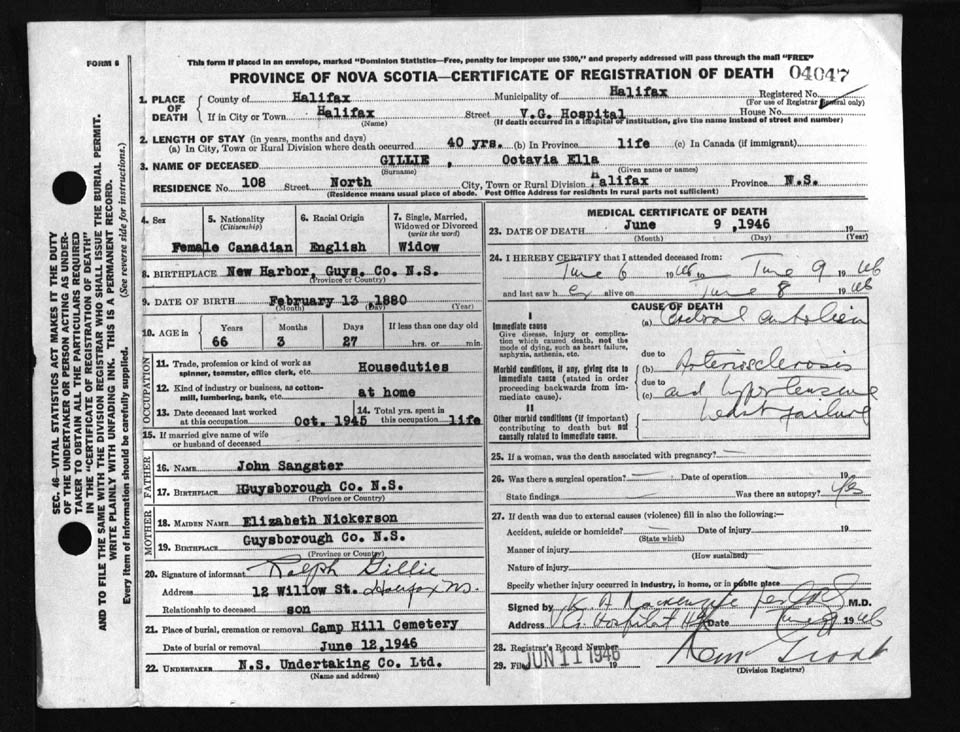 FORM 6
This form if placed in an envelope, marked "Dominion Statistics—Free, penalty for improper use $300," and properly addressed will pass through the mail "FREE"
PROVINCE OF NOVA SCOTIA—CERTIFICATE OF REGISTRATION OF DEATH 04047
SEC. 46—VITAL STATISTICS ACT MAKES IT THE DUTY
OF THE UNDERTAKER OR PERSON ACTING AS UNDER-
TAKER TO OBTAIN ALL THE PARTICULARS REQUIRED
IN THE "CERTIFICATE OF REGISTRATION OF DEATH"
AND TO FILE THE SAME WITH THE DIVISION REGISTRAR WHO SHALL ISSUE THE BURIAL PERMIT.
WRITE PLAINLY WITH UNFADING INK. THIS IS A PERMANENT RECORD.
Every item of information should be carefully supplied. (See reverse side for instructions.)
1. PLACE OF DEATH County of Halifax Municipality of Halifax Registered No.
(For use of Registrar General only)
If in City or Town Halifax Street V.G. Hospital House No.
(Name) (If death occurred in a hospital or institution, give the name instead of street and number)
2. LENGTH OF STAY (in years, months and days)
(a) In City, Town or Rural Division where death occurred 40 yrs. (b) In Province life (c) In Canada (if immigrant)
3. NAME OF DECEASED GILLIE, Octavia Ella
(Surname) (Given name or names)
RESIDENCE No. 108 Street North City, Town or Rural Division Halifax Province N.S.
(Residence means usual place of abode. Post Office Address for residents in rural parts not sufficient)
4. Sex 5. Nationality (Citizenship) 6. Racial Origin 7. Single, Married, Widowed or Divorced (write the word)
Female Canadian English Widow
8. BIRTHPLACE New Harbor, Guys. Co. N.S.
(Province or Country)
9. DATE OF BIRTH February 13 1880
(Month) (Day) (Year)
10. AGE in Years Months Days If less than one day old
66 3 27 hrs. or min.
OCCUPATION
11. Trade, profession or kind of work as
spinner, teamster, office clerk, etc. Houseduties
12. Kind of industry or business, as cotton-
mill, lumbering, bank, etc. at home
13. Date deceased last worked
at this occupation Oct. 1945 14. Total yrs. spent in this occupation life
15. If married give name of wife
or husband of deceased
FATHER
16. NAME John Sangster
17. BIRTHPLACE Guysborough Co. N.S.
(Province or Country)
MOTHER
18. MAIDEN NAME Elizabeth Nickerson
19. BIRTHPLACE Guysborough Co. N.S.
(Province or Country)
20. Signature of informant Ralph Gillie
Address 12 Willow St. Halifax N.S.
Relationship to deceased son
21. Place of burial, cremation or removal Camp Hill Cemetery
Date of burial or removal June 12, 1946
22. UNDERTAKER N.S. Undertaking Co. Ltd.
(Name and address)
MEDICAL CERTIFICATE OF DEATH
23. DATE OF DEATH June 9, 1946 19
(Month) (Day) (Year)
24. I HEREBY CERTIFY that I attended deceased from:
June 6 1946 to June 9 1946
and last saw her alive on June 8 1946
CAUSE OF DEATH
I
Immediate cause
Give disease, injury or complica-
tion which caused death, not the
mode of dying, such as heart failure,
asphyxia, asthenia, etc.
(a) Cerebral
due to
Morbid conditions, if any, giving rise to
immediate cause (stated in order
proceeding backwards from im-
mediate cause).
(b) Arteriosclerosis
due to
(c) and hypertensive
heart failure
II
Other morbid conditions (if important)
contributing to death but not
causally related to immediate cause.
25. If a woman, was the death associated with pregnancy?
26. Was there a surgical operation? Date of operation 19
State findings Was there an autopsy? yes
27. If death was due to external causes (violence) fill in also the following:—
Accident, suicide or homicide? Date of injury 19
(State which)
Manner of injury
(How sustained)
Nature of injury
Specify whether injury occurred in industry, in home, or in public place
Signed by K. A. Mackenzie per M.D.
Address V.G. Hospital Hfx Date June 9 1946
28. Registrar's Record Number
29. Filed JUN 11 1946 19
(Division Registrar)